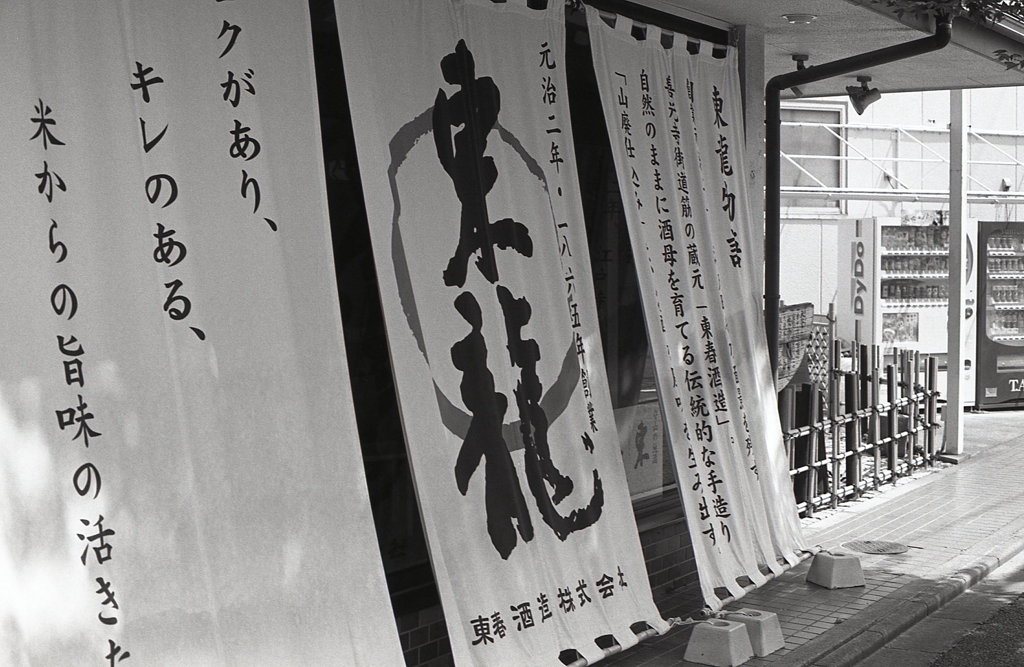 クがあり、
キレのある、
米からの旨味の活きた
元治二年・一八六五年創業
東龍
東春酒造株式会社
東龍物語
善光寺街道筋の蔵元「東春酒造」
自然のままに酒母を育てる伝統的な手造り
「山廃仕込み
生み出す
DyDo
TA